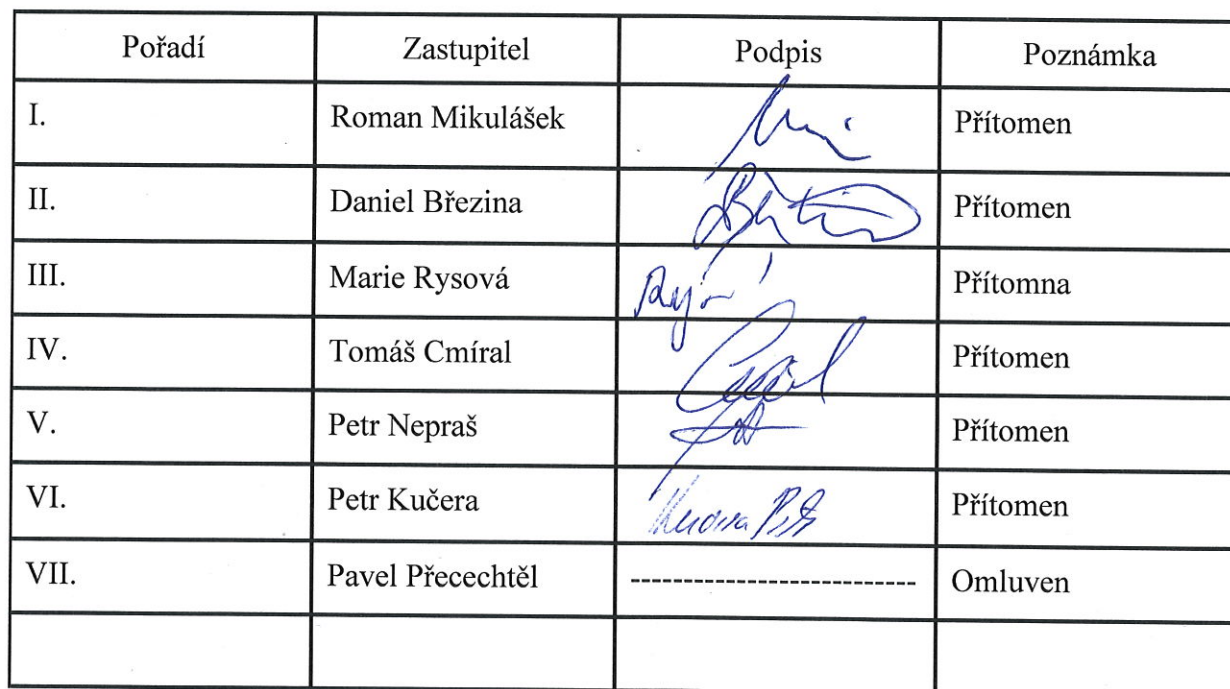 Pořadí Zastupitel Podpis Poznámka
I. Roman Mikulášek Přítomen
II. Daniel Březina Přítomen
III. Marie Rysová Přítomna
IV. Tomáš Cmíral Přítomen
V. Petr Nepraš Přítomen
VI. Petr Kučera Přítomen
VII. Pavel Přecechtěl -------------------------- Omluven